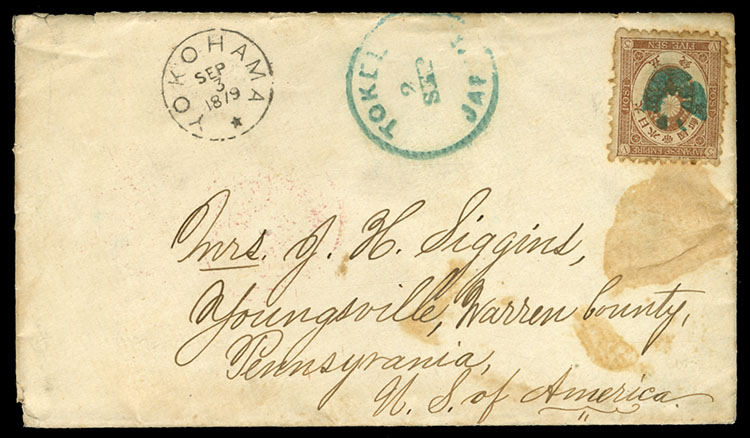 YOKOHAMA
SEP
3
1879
TOKEI
2
SEP
JAP
FIVE SEN
JAPANESE EMPIRE
Mrs. J. H. Siggins,
Youngsville, Warren County,
Pennsyvania,
U. S. of America.